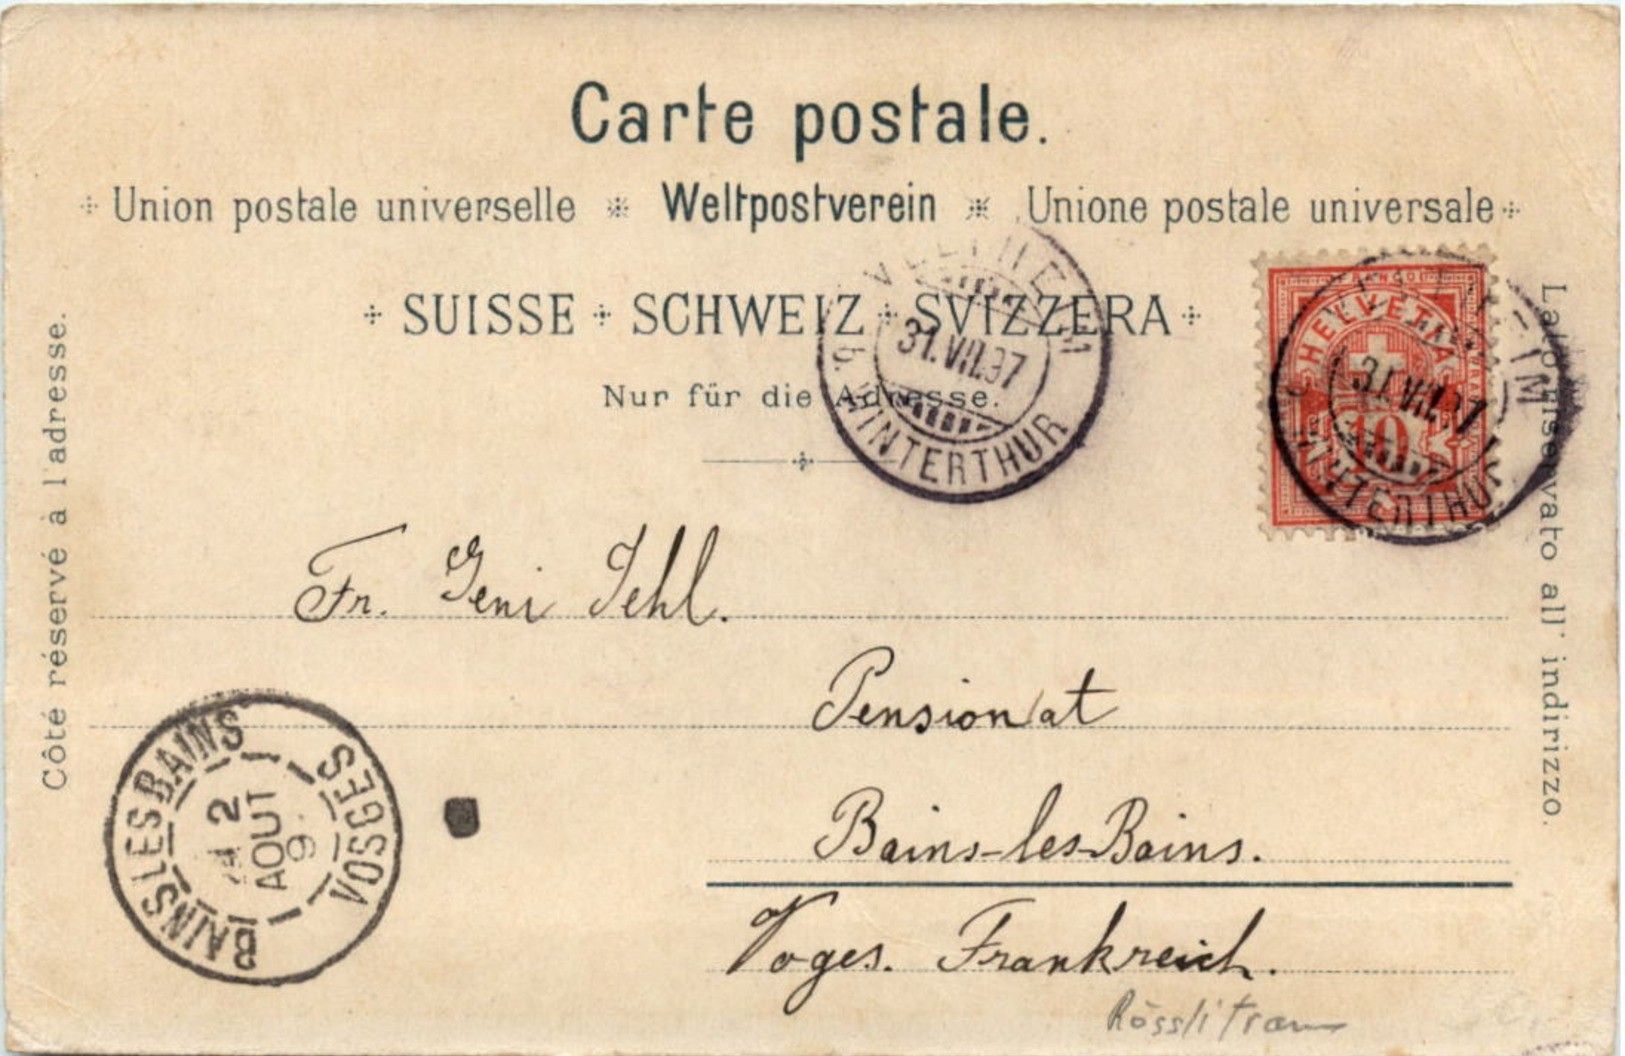 Carte postale.
Union postale universelle Weltpostverein Unione postale universale
SUISSE SCHWEIZ SVIZZERA
Nur für die Adresse.
VELTHEIM
31.VII.97
b. WINTERTHUR
HELVETIA
10
31.VII.97
WINTERTHUR
Côté réservé à l'adresse.
Lato riservato all' indirizzo.
Fr. Geni Jehl.
Pensionat
Bains-les-Bains.
Voges. Frankreich.
BAINS LES BAINS
2
AOUT
9
VOSGES
Rösslitram